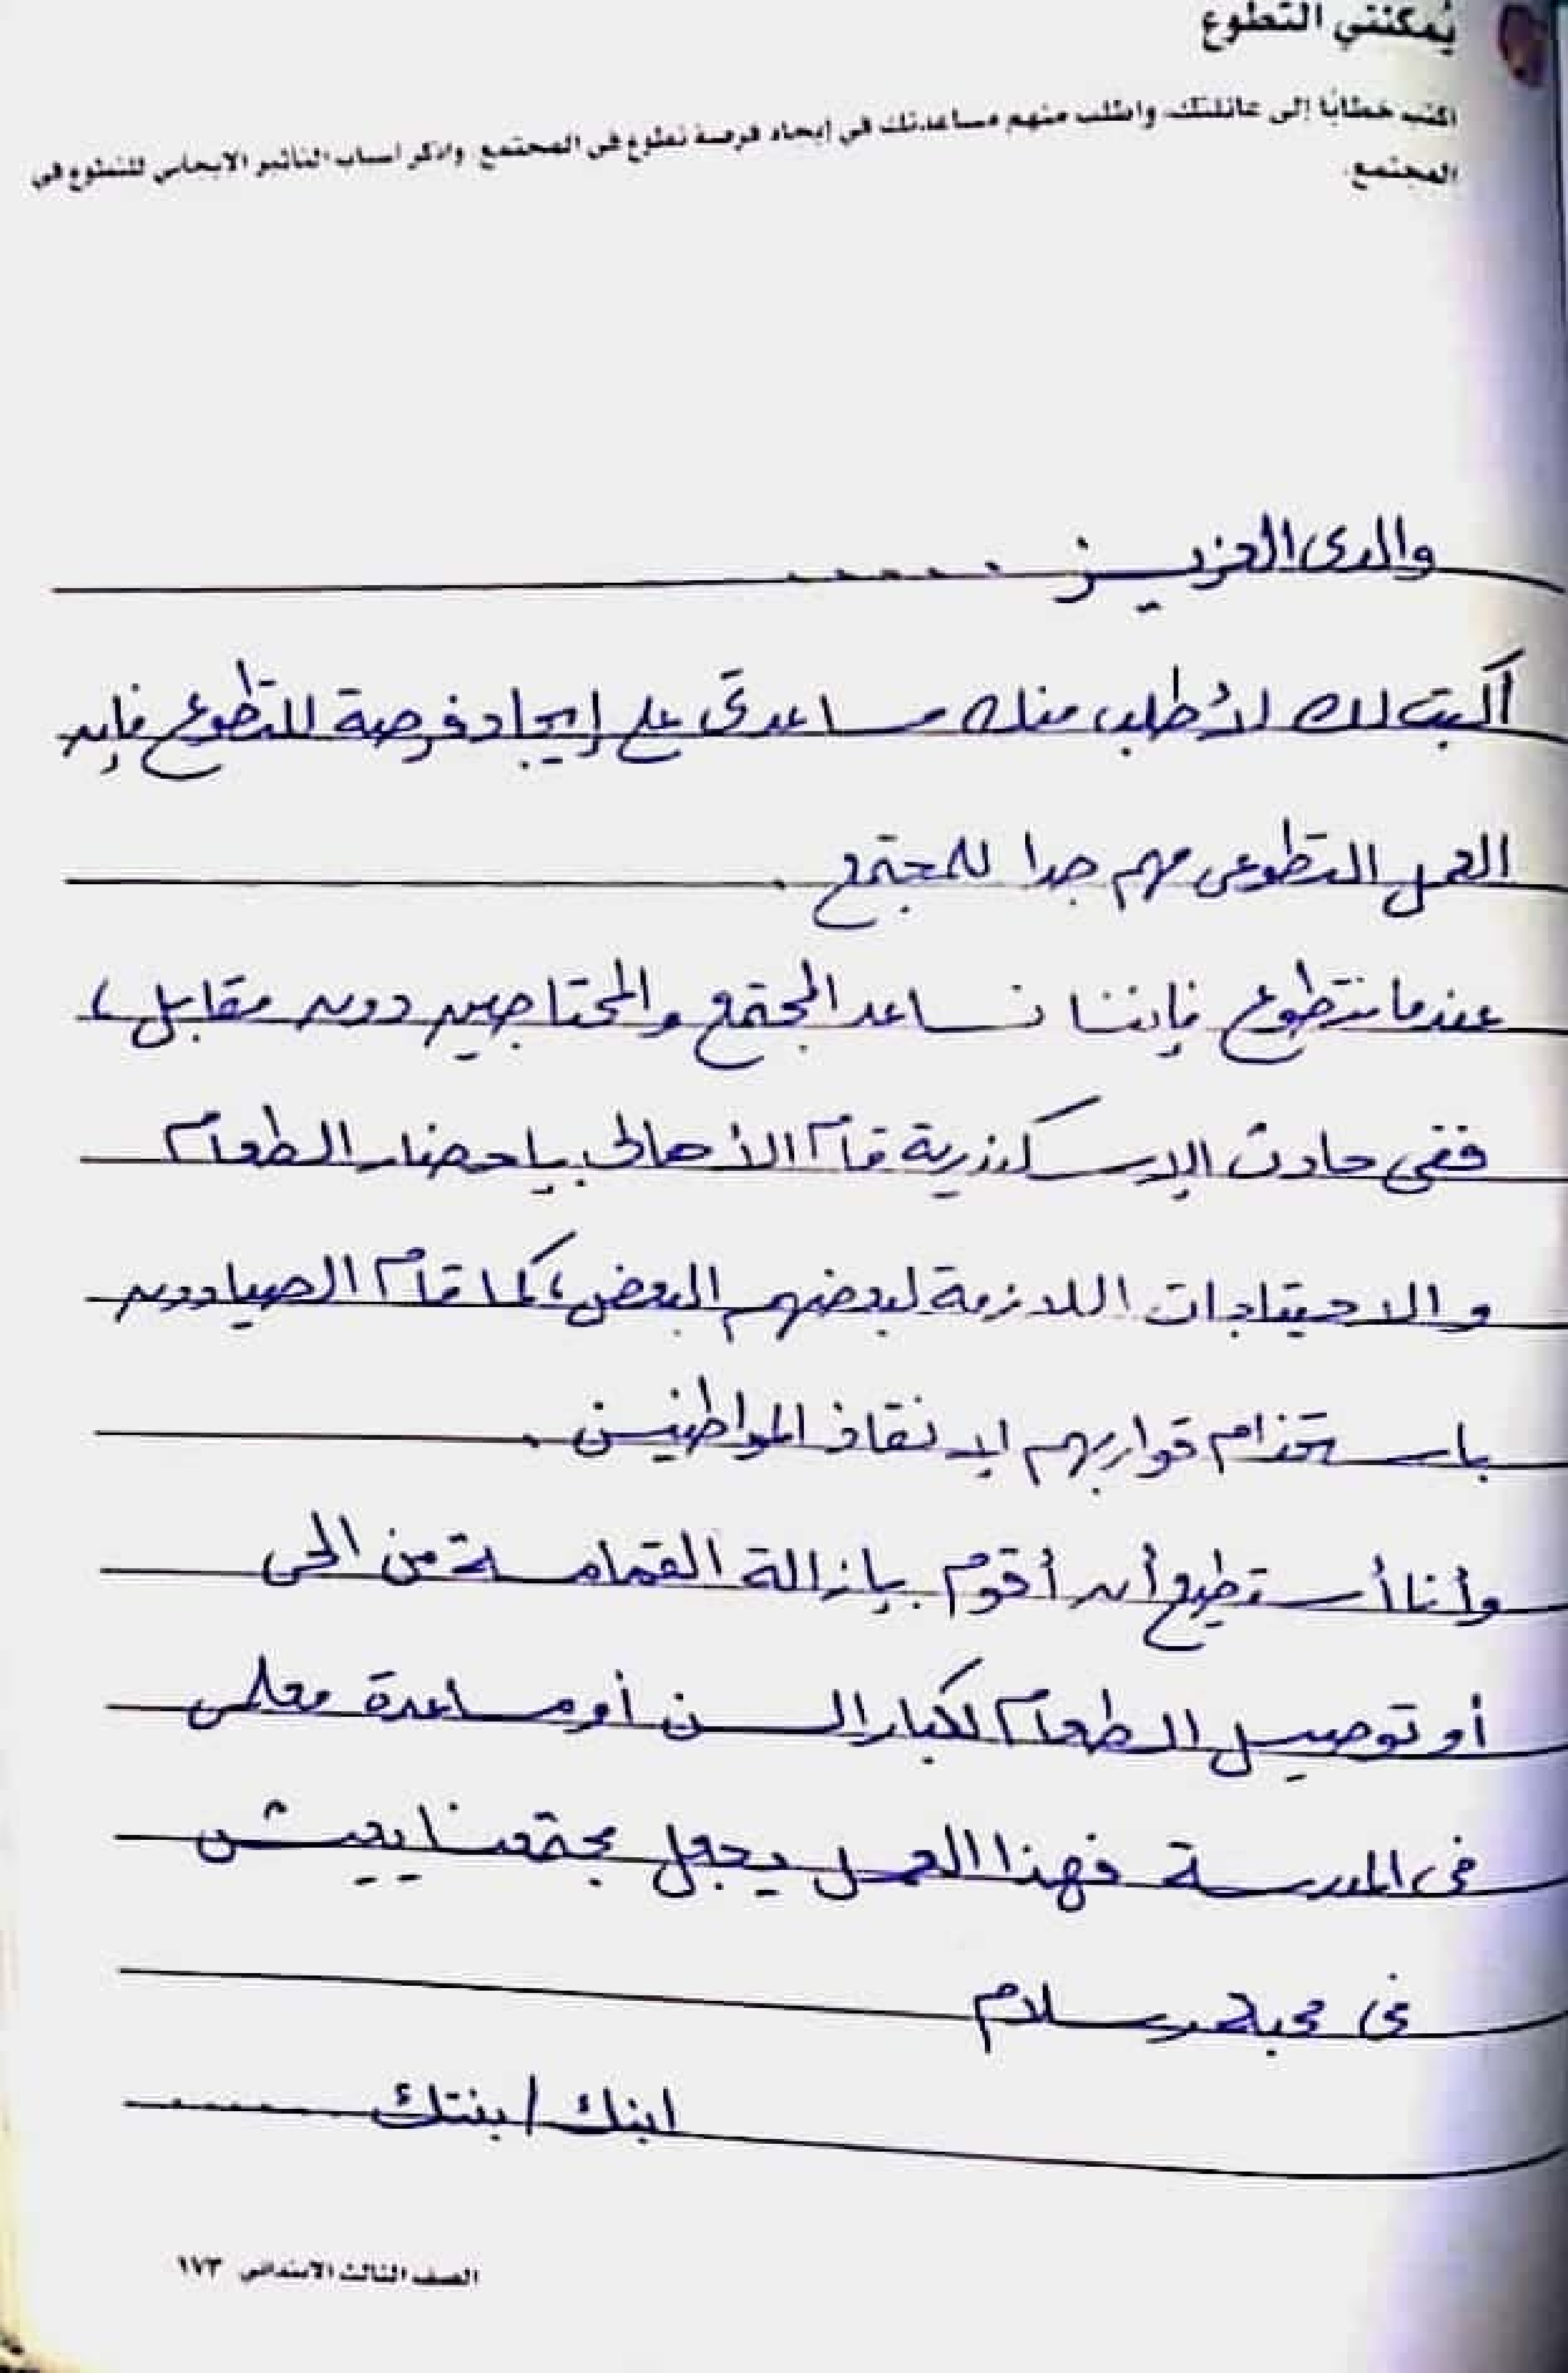 يُمكنني التطوع
اكتب خطابًا إلى عائلتك، واطلب منهم مساعدتك في إيجاد فرصة تطوع في المجتمع. واذكر أسباب التأثير الإيجابي للتطوع في
المجتمع.
والدى العزيز .....
أكتب لك لأطلب منك مساعدتى على إيجاد فرصة للتطوع فإن
العمل التطوعى مهم جدا للمجتمع .
عندما نتطوع فإننا نساعد المجتمع والمحتاجين دون مقابل ،
ففى حادث الإسكندرية قام الأهالى بإحضار الطعام
والاحتياجات اللازمة لبعضهم البعض ، كما قام الصيادون
باستخدام قواربهم لإنقاذ المواطنين .
وأنا أستطيع أن أقوم بإزالة القمامة من الحى
أو توصيل الطعام لكبار السن أو مساعدة معلمى
فى المدرسة فهذا العمل يجعل مجتمعنا يعيش
فى محبة وسلام
ابنك / بنتك ......
الصف الثالث الابتدائي ١٧٣